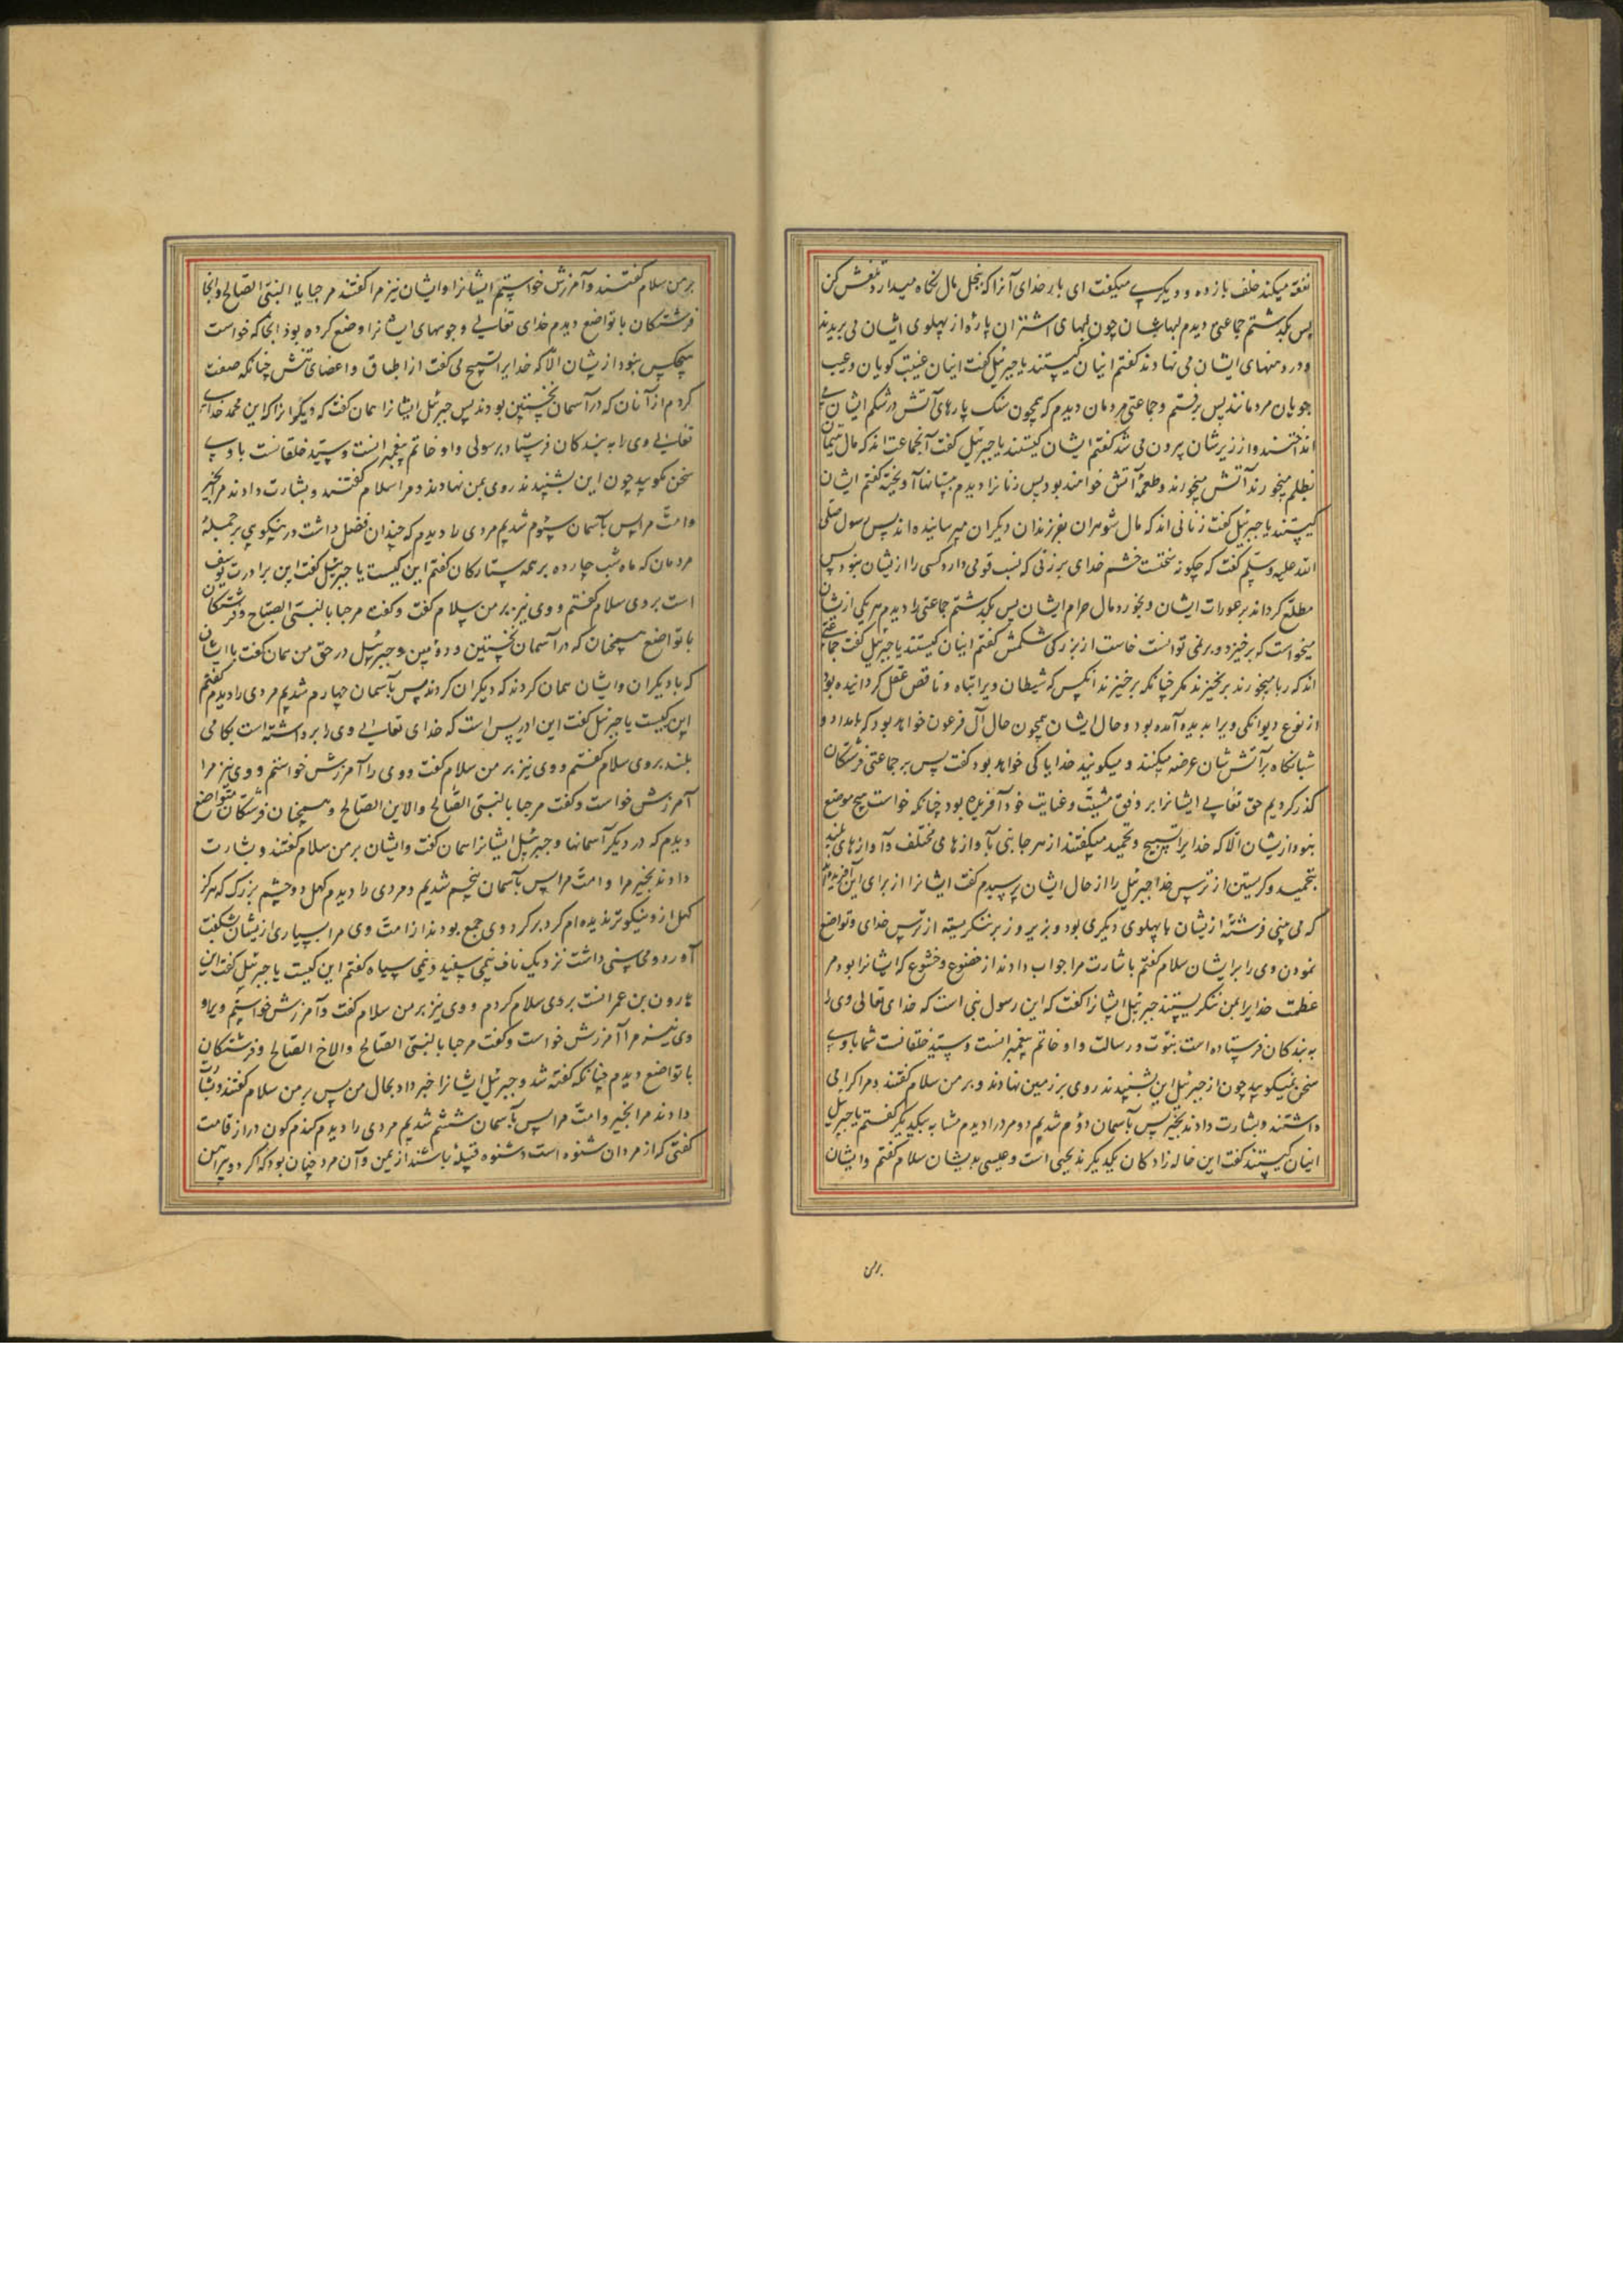 نفقه میکند خلف بازده و دیگری میگفت ای بار خدای آنرا که بخل مال نگاه میدارد تلفش کن
پس بگذشتم جماعتی دیدم لبهاشان چون لبهای اشتران پارۀ از پهلوی ایشان می بریدند
و در دهنهای ایشان می نهادند گفتم اینان کیستند یا جبرئیل گفت اینان غیبت گویان و عیب
جویان مردمانند پس برفتم و جماعتی مردمان دیدم که همچون سنگ پارهای آتش در شکم ایشان می
انداختند و از زیرشان بیرون می شد گفتم ایشان کیستند یا جبرئیل گفت آنجماعت اند که مال یتیمان
بظلم میخورند آتش میخورند و طعمۀ آتش خواهند بود پس زنانرا دیدم بپستانها آویخته گفتم ایشان
کیستند یا جبرئیل گفت زنانی اند که مال شوهران بفرزندان دیگران میرسانیده اند پس رسول صلی
الله علیه وسلم گفت که چگونه سختست خشم خدای بر زنی که نسب قومی دارد کسی را از یشان نبود پس
مطلع گرداند بر عورات ایشان و بخورد مال حرام ایشان پس بگذشتم جماعتی را دیدم هر یکی از یشان
میخواست که برخیزد و بر نمی توانست خاست از بزرگی شکمش گفتم اینان کیستند یا جبرئیل گفت جماعتی
اند که ربا میخورند بر نخیزند مگر چنانکه برخیزند انکس که شیطان ویرا تباه و ناقص عقل گردانیده بود
از نوع دیوانگی ویرا پدیده آمده بود و حال ایشان همچون حال آل فرعون خواهد بود که بامداد و
شبانگاه بر آتش شان عرضه میکنند و میگویند خدایا کی خواهد بود گفت پس بر جماعتی فرشتگان
گذر کردیم حق تعالی ایشانرا بر وفق مشیت و عنایت خود آفریده بود چنانکه خواست هیچ موضع
نبود از یشان الا که خدایرا تسبیح و تحمید میگفتند از هر جانبی بآوازهای مختلف و آوازهای بلند
بتحمید و گریستن از ترس خدا جبرئیل را از حال ایشان پرسیدم گفت ایشانرا از برای این آفریده اند
که می بینی فرشتۀ از یشان با پهلوی دیگری بود و بزیر و زبر ننگریسته از ترس خدای و تواضع
نمودن وی را بر ایشان سلام گفتم باشارت مرا جواب دادند از خضوع و خشوع که ایشانرا بود مر
عظمت خدایرا بمن ننگریستند جبرئیل ایشانرا گفت که این رسول نبی است که خدای تعالی وی را
به بندگان فرستاده است بنبوت و رسالت و او خاتم پیغمبرانست و سید خلقانست شما با وی
سخن نمیگویید چون از جبرئیل این بشنیدند روی بر زمین نهادند و بر من سلام گفتند و مرا گرامی
داشتند و بشارت دادند بخیر پس بآسمان دوم شدیم دو مرد را دیدم مشابه بیکدیگر گفتم یا جبرئیل
اینان کیستند گفت این خاله زادگان یکدیگرند یحیی است و عیسی بدیشان سلام گفتم و ایشان
برمن
برمن سلام گفتند و آمرزش خواستم ایشانرا و ایشان نیز مرا گفتند مرحبا یا النبی الصالح و آنجا
فرشتگان با تواضع دیدم خدای تعالی وجوههای ایشانرا وضع کرده بود آنجا که خواست
هیچکس نبود از یشان الا که خدایرا تسبیح می گفت از اطباق و اعضای تنش چنانکه صفت
کردم از آنان که در آسمان نخستین بودند پس جبرئیل ایشانرا همان گفت که دیگرانرا که این محمد خدای
تعالی وی را به بندگان فرستاد برسولی و او خاتم پیغمبرانست و سید خلقانست با وی
سخن نگویید چون این بشنیدند روی بمن نهادند و مرا سلام گفتند و بشارت دادند مرا بخیر
و امت مرا پس بآسمان سیوم شدیم مردی را دیدم که چندان فضل داشت در نیکویی بر جملۀ
مردمان که ماه شب چارده بر همه ستارگان گفتم این کیست یا جبرئیل گفت این برادرت یوسف
است بر وی سلام گفتم و وی نیز بر من سلام گفت و گفت مرحبا بالنبی الصالح و فرشتگان
با تواضع همچنان که در آسمان نخستین و دومین و جبرئیل در حق من همان گفت با ایشان
که با دیگران و ایشان همان کردند که دیگران کردند پس بآسمان چهارم شدیم مردی را دیدم گفتم
این کیست یا جبرئیل گفت این ادریس است که خدای تعالی وی را برداشته است بمکانی
بلند بر وی سلام گفتم و وی نیز بر من سلام گفت و وی را آمرزش خواستم و وی نیز مرا
آمرزش خواست و گفت مرحبا بالنبی الصالح والابن الصالح و همچنان فرشتگان متواضع
دیدم که در دیگر آسمانها و جبرئیل ایشانرا همان گفت و ایشان بر من سلام گفتند و بشارت
دادند بخیر مرا و امت مرا پس بآسمان پنجم شدیم و مردی را دیدم کهل دو چشم بزرگ که هرگز
کهل از و نیکوتر ندیده ام گرد بر گرد وی جمع بودند از امت وی مرا بسیاری از یشان شگفت
آورد و محاسنی داشت نزدیک ناف نیمی سپید و نیمی سیاه گفتم این کیست یا جبرئیل گفت این
هارون بن عمرانست بر وی سلام کردم و وی نیز بر من سلام گفت و آمرزش خواستم ویرا و
وی نیز مرا آمرزش خواست و گفت مرحبا بالنبی الصالح والاخ الصالح و فرشتگان
با تواضع دیدم چنانکه گفته شد و جبرئیل ایشانرا خبر داد بحال من پس بر من سلام گفتند و بشارت
دادند مرا بخیر و امت مرا پس بآسمان ششم شدیم مردی را دیدم گندم گون دراز قامت
گفتی که از مردان شنوه است و شنوه قبیلۀ باشند از یمن و آن مرد چنان بود که اگر دو پیراهن